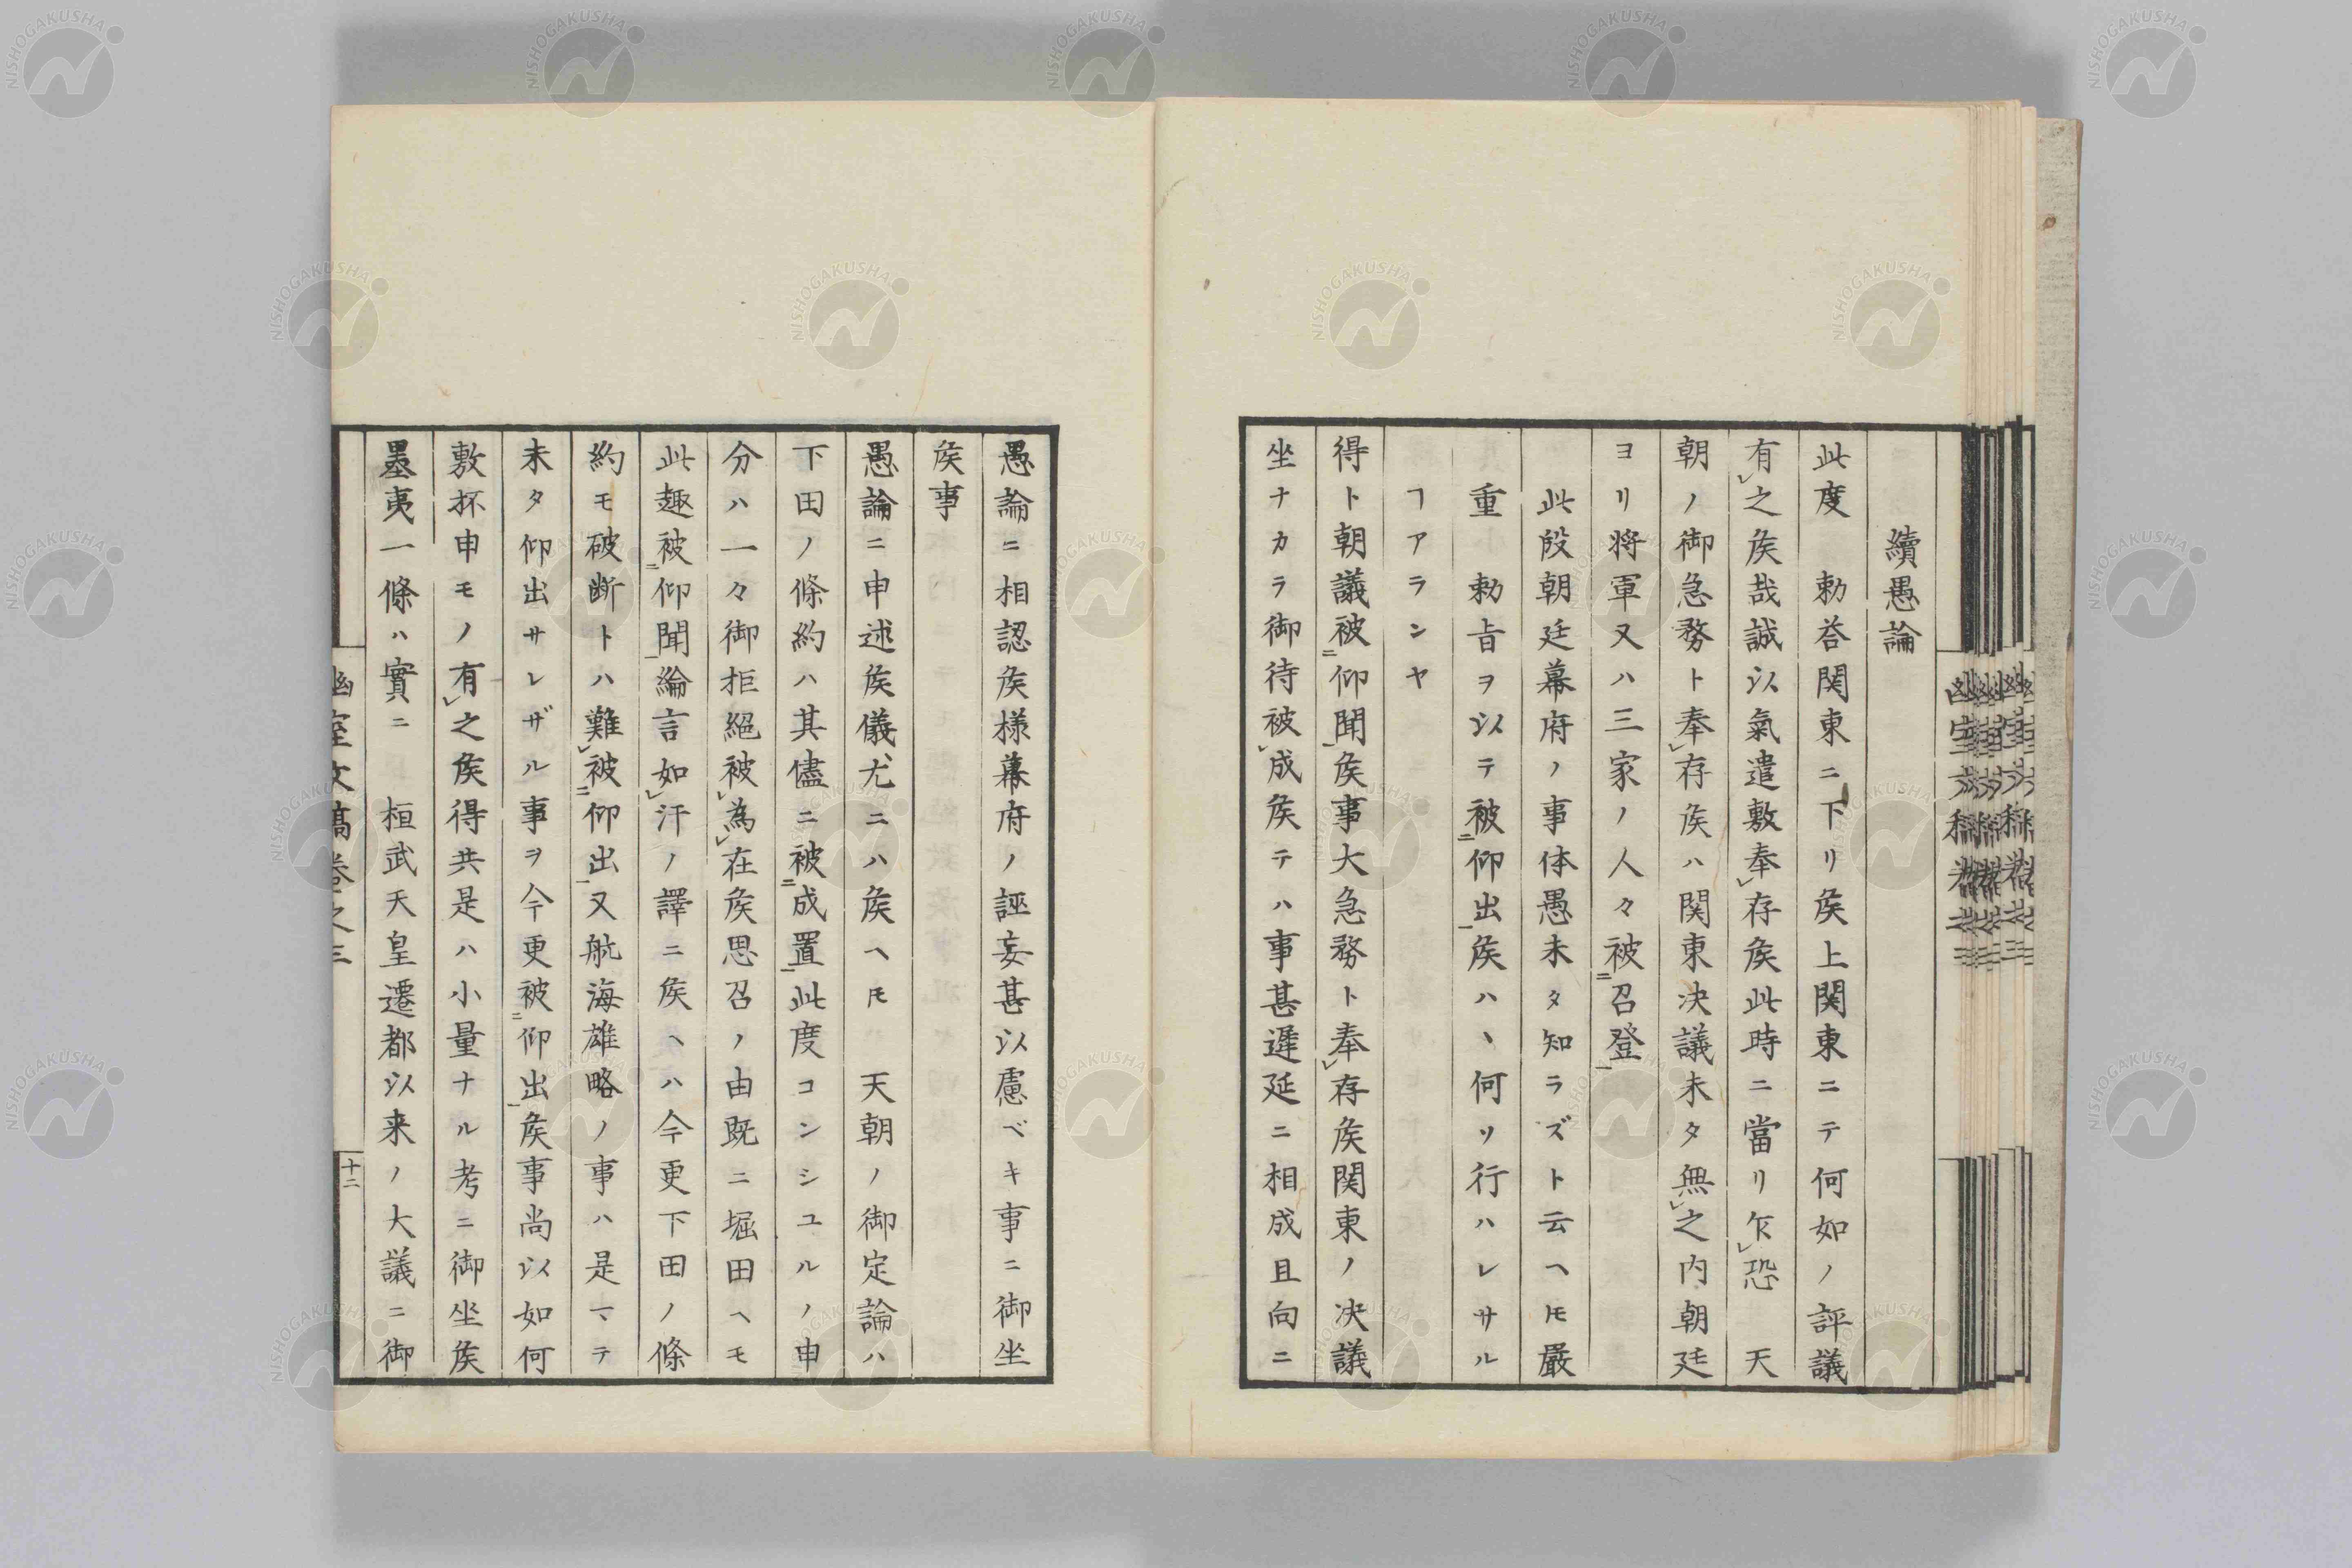 續愚論
此度　勅答関東ニ下リ矦上関東ニテ何如ノ評議
有レ之矦哉誠以氣遣敷奉レ存矦此時ニ當リ乍レ恐　天
朝ノ御急務ト奉レ存矦ハ関東决議未タ無レ之内朝廷
ヨリ将軍又ハ三家ノ人々被二召登一
此段朝廷幕府ノ事体愚未タ知ラズト云ヘㇳモ嚴
重　勅旨ヲ以テ被二仰出一矦ハヽ何ソ行ハレサル
ヿアランヤ
得ト朝議被二仰聞一矦事大急務ト奉レ存矦関東ノ决議
坐ナカラ御待被レ成矦テハ事甚遲延ニ相成且向ニ
愚論ニ相認矦様幕府ノ誣妄甚以慮ベキ事ニ御坐
矦事
愚論ニ申述矦儀尤ニハ矦ヘㇳモ　天朝ノ御定論ハ
下田ノ條約ハ其儘ニ被二成置一此度コンシユルノ申
分ハ一々御拒絕被レ為レ在矦思召ノ由既ニ堀田ヘモ
此趣被二仰聞一綸言如レ汗ノ譯ニ矦ヘハ今更下田ノ條
約モ破断トハ難レ被二仰出一又航海雄略ノ事ハ是マテ
未タ仰出サレザル事ヲ今更被二仰出一矦事尚以如何
敷抔申モノ有レ之矦得共是ハ小量ナル考ニ御坐矦
墨夷一條ハ實ニ　桓武天皇遷都以来ノ大議ニ御
幽室文稿卷之三
十二